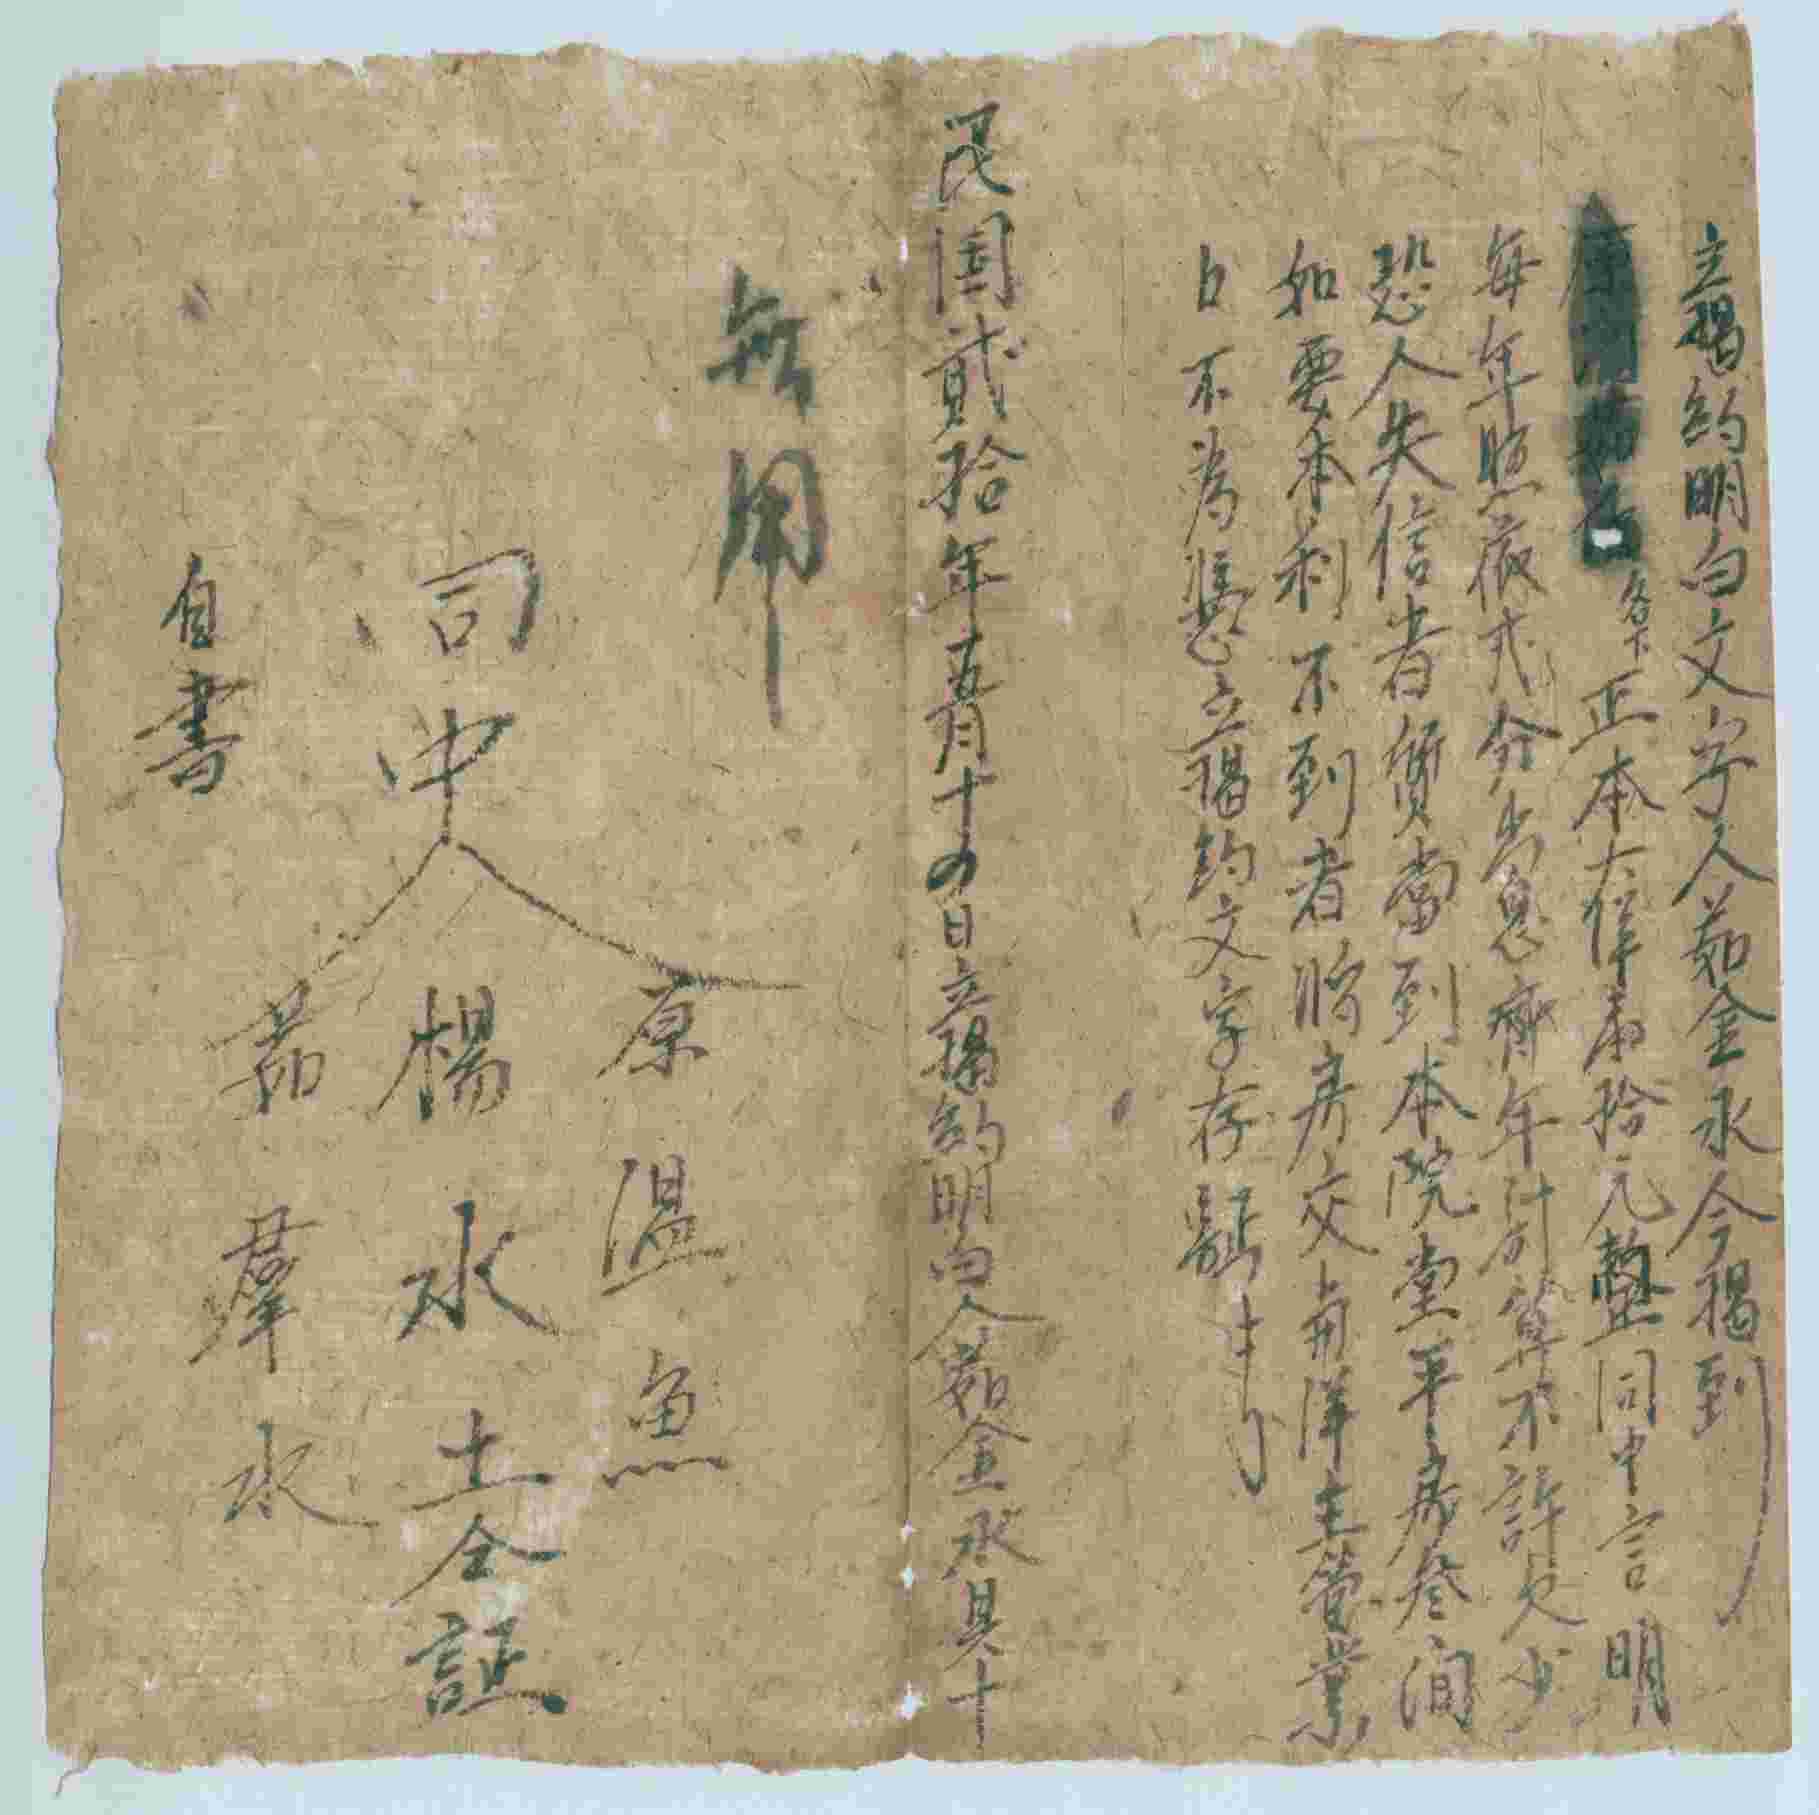 立揭約明白文字人茹金永今揭到
名下正本大洋拾元整同中言明
每年照嵗弍分出息齊年計算不許欠少
恐人失信者質當到本院堂平房叁间
如要本利不到者將房交与洋主管業
日不為憑立揭約文字存證
民国貳拾年五月十四日立揭約明白人茹金永具十
無用
同中人
原温魚
楊水土仝証
茹羣永
自書